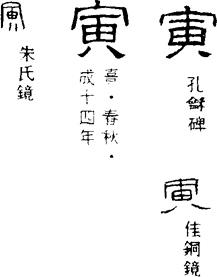 寅
孔龢碑
寅
佳銅鏡
寅
熹·春秋·
成十四年
寅
朱氏鏡